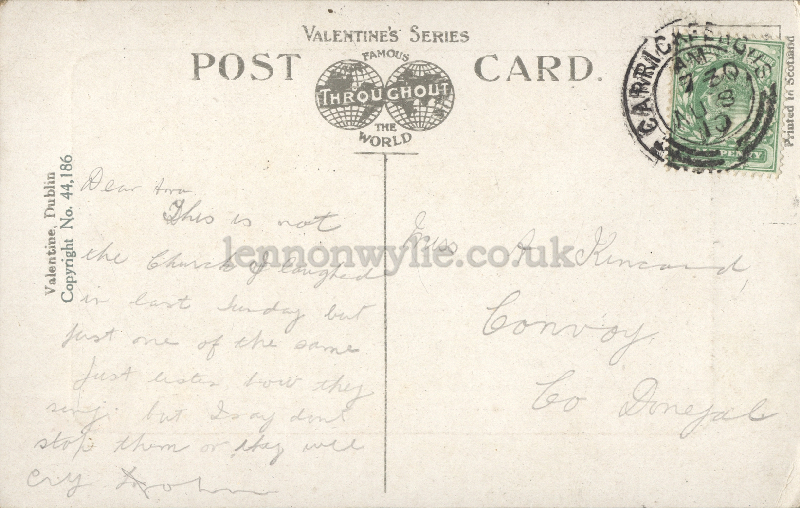 VALENTINE'S SERIES
POST CARD.
FAMOUS
THROUGHOUT
THE
WORLD
Printed in Scotland
CARRICKFERGUS
AM
9 20
AU 8
10
PENNY
Valentine, Dublin
Copyright No. 44,186
Dear
This is not
the Church I laughed
in last Sunday but
just one of the same
Just listen how they
sing but I say dont
stop them or they will
cry
Miss A Kincaid,
Convoy
Co Donegal
lennonwylie.co.uk